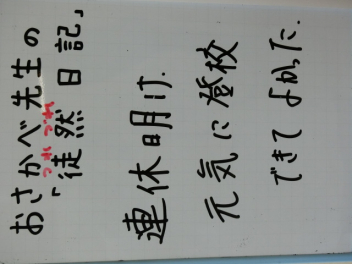 おさかべ先生の
「徒然日記」
つれづれ
連休明け.
元気に登校
できてよかった.